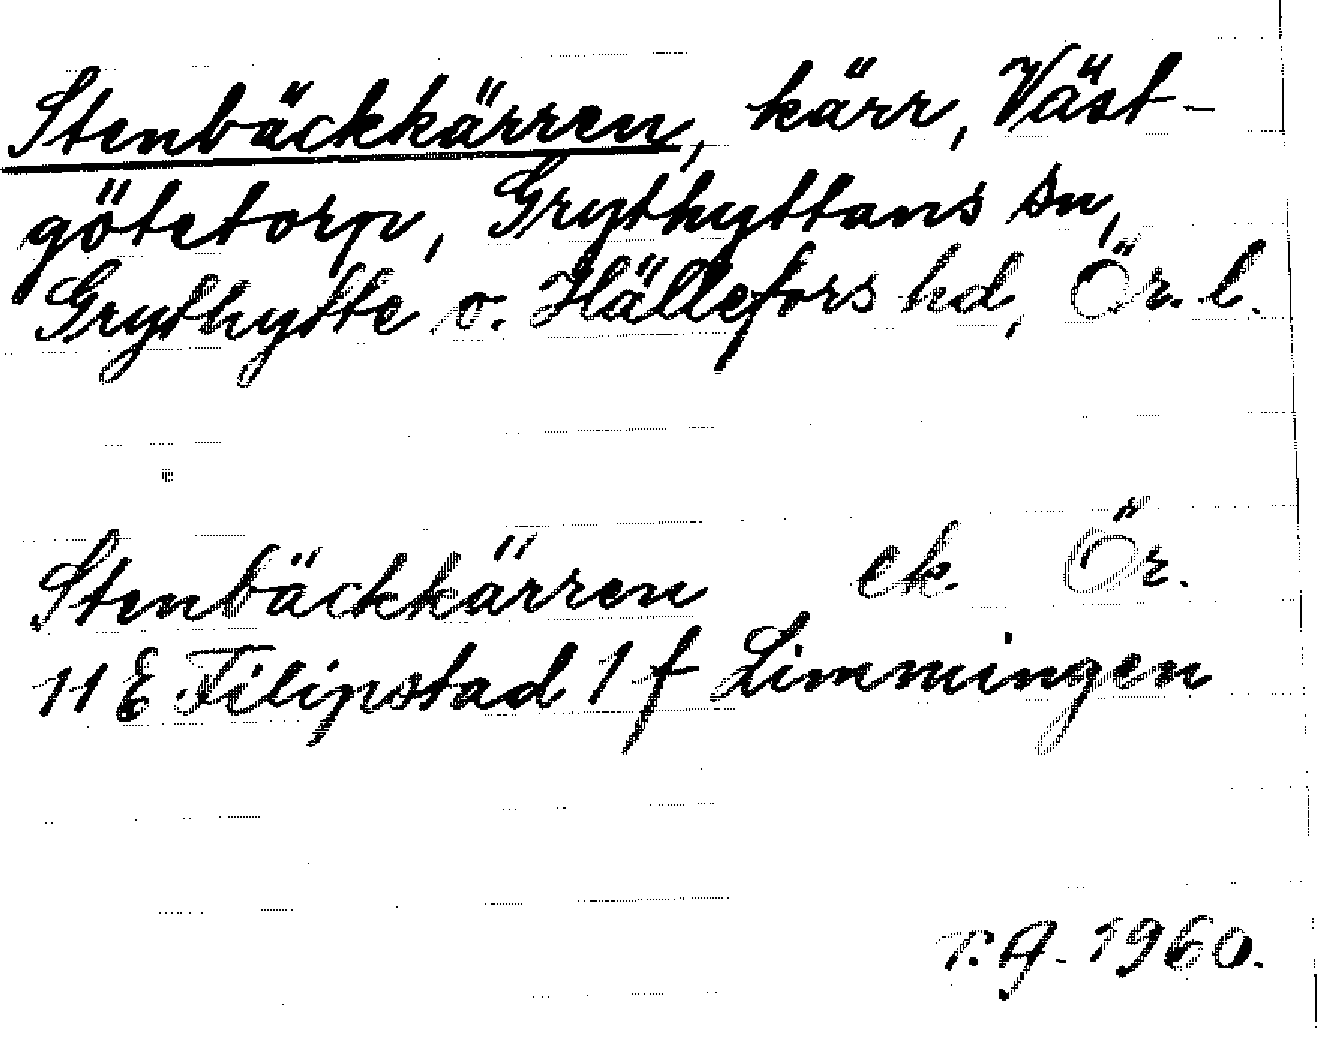 Stenbäckkärren, kärr, Väst-
götetorp, Grythyttans sn,
Grythytte o. Hällefors hd, Ör. l.
Stenbäckkärren ek. Ör.
11 E Filipstad 1 f Limmingen
T.A. 1960.